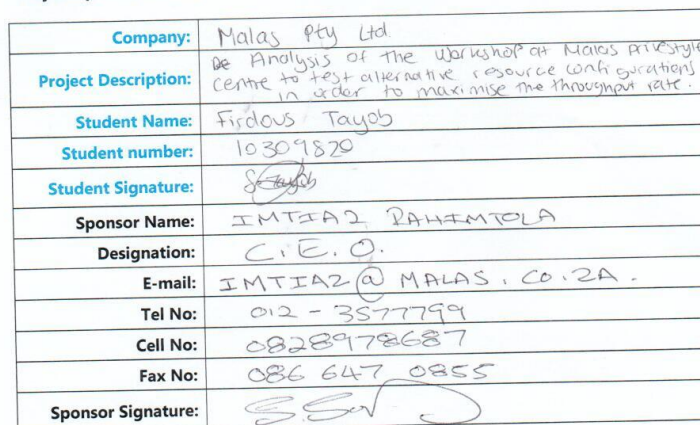 Company: Malas Pty Ltd
Project Description: Analysis of the Workshop at Malas Drivestyle
centre to test alternative resource configurations
in order to maximise the throughput rate.
Student Name: Firdous Tayob
Student number: 10309820
Student Signature:
Sponsor Name: IMTIAZ RAHIMTOLA
Designation: C.E.O.
E-mail: IMTIAZ @ MALAS. CO.ZA.
Tel No: 012 - 3577799
Cell No: 0828978687
Fax No: 086 647 0855
Sponsor Signature: